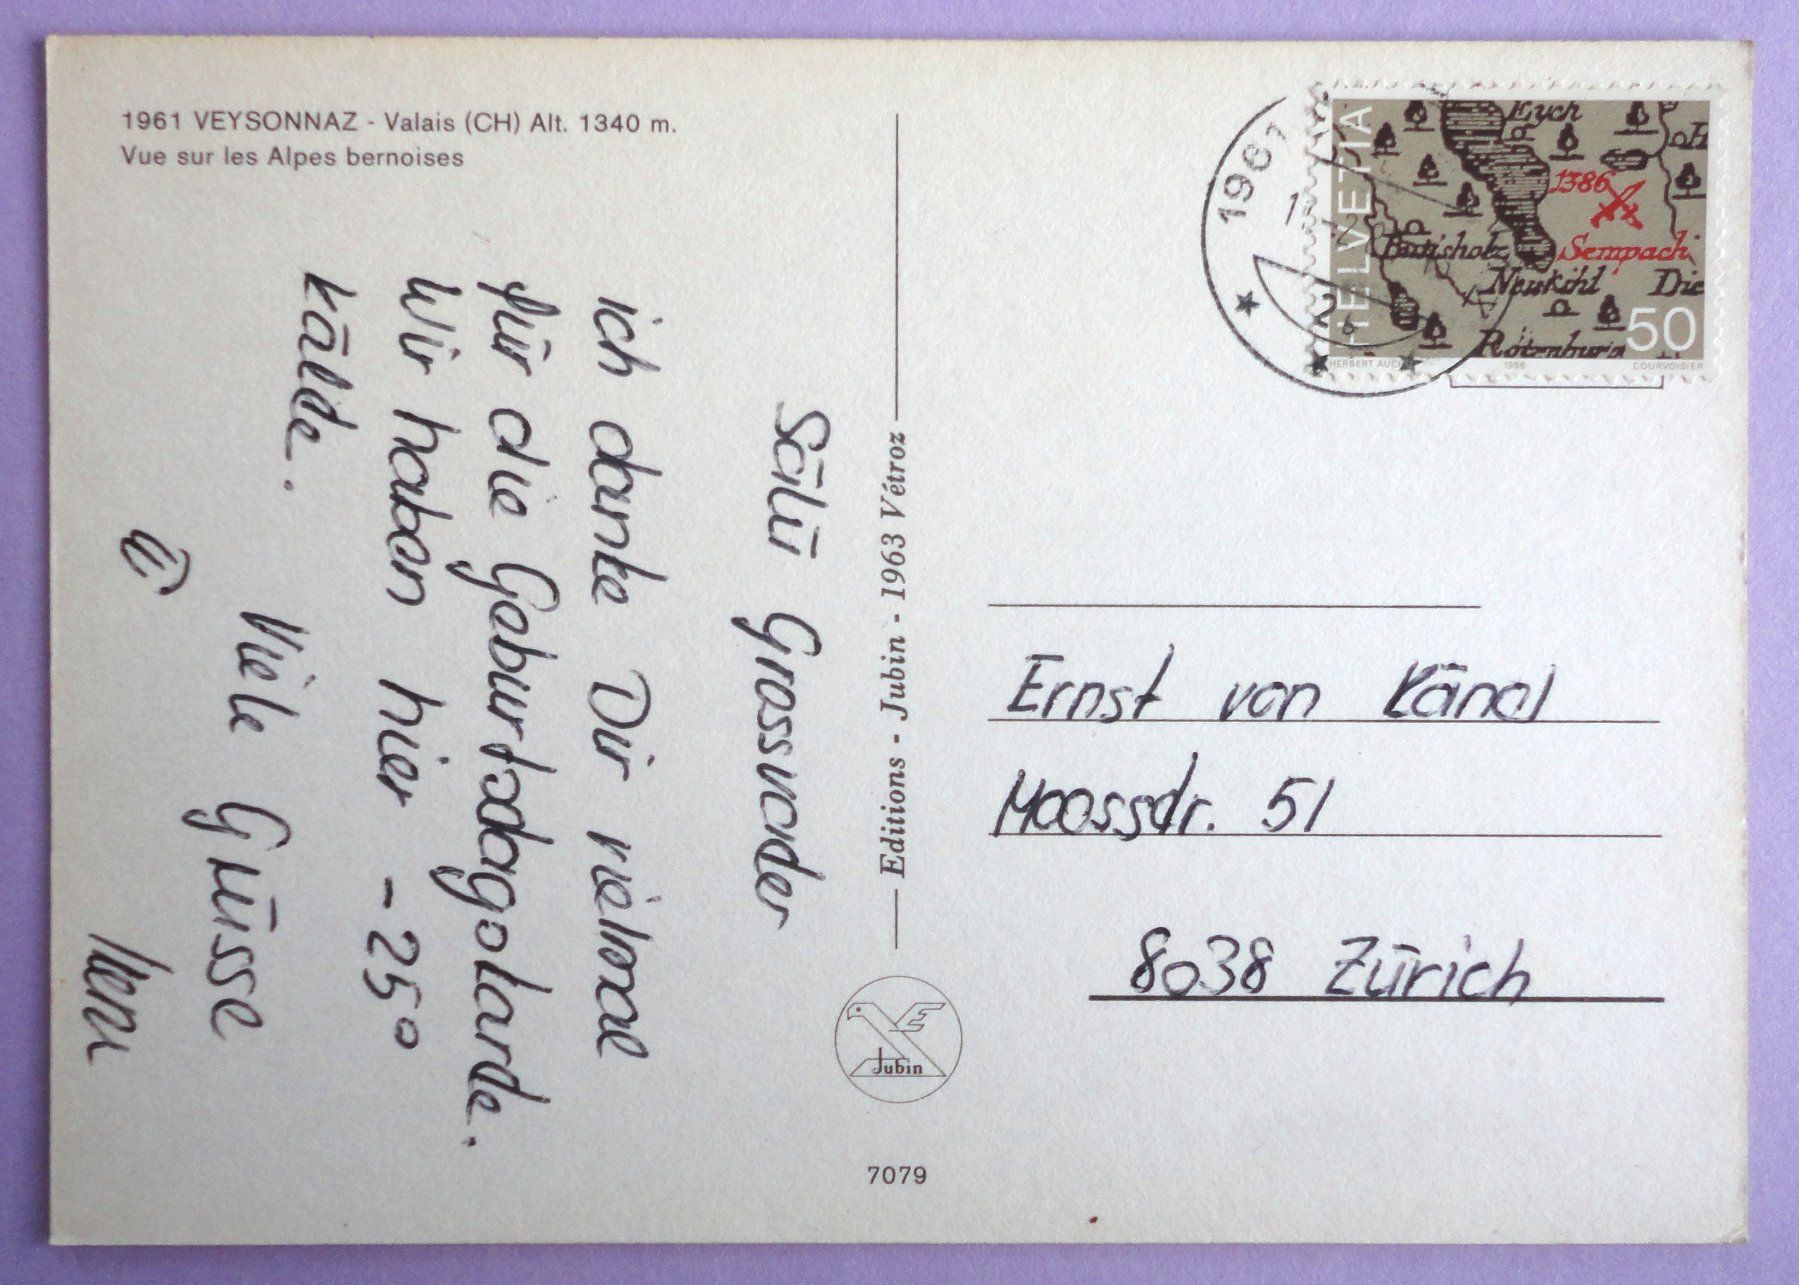 1961 VEYSONNAZ - Valais (CH) Alt. 1340 m.
Vue sur les Alpes bernoises
Sälü Grossvader
ich danke Dir vielmal
für die Geburtsdagskarde.
Wir haben hier -25°
kälde.
Viele Grüsse
Editions - Jubin - 1963 Vétroz
Jubin
7079
1961
HELVETIA
Eych
1386
Sempach
Neukihl
Die
Rotenburg
50
1986
COURVOISIER
Ernst von Känel
Moossdr. 51
8038 Zürich